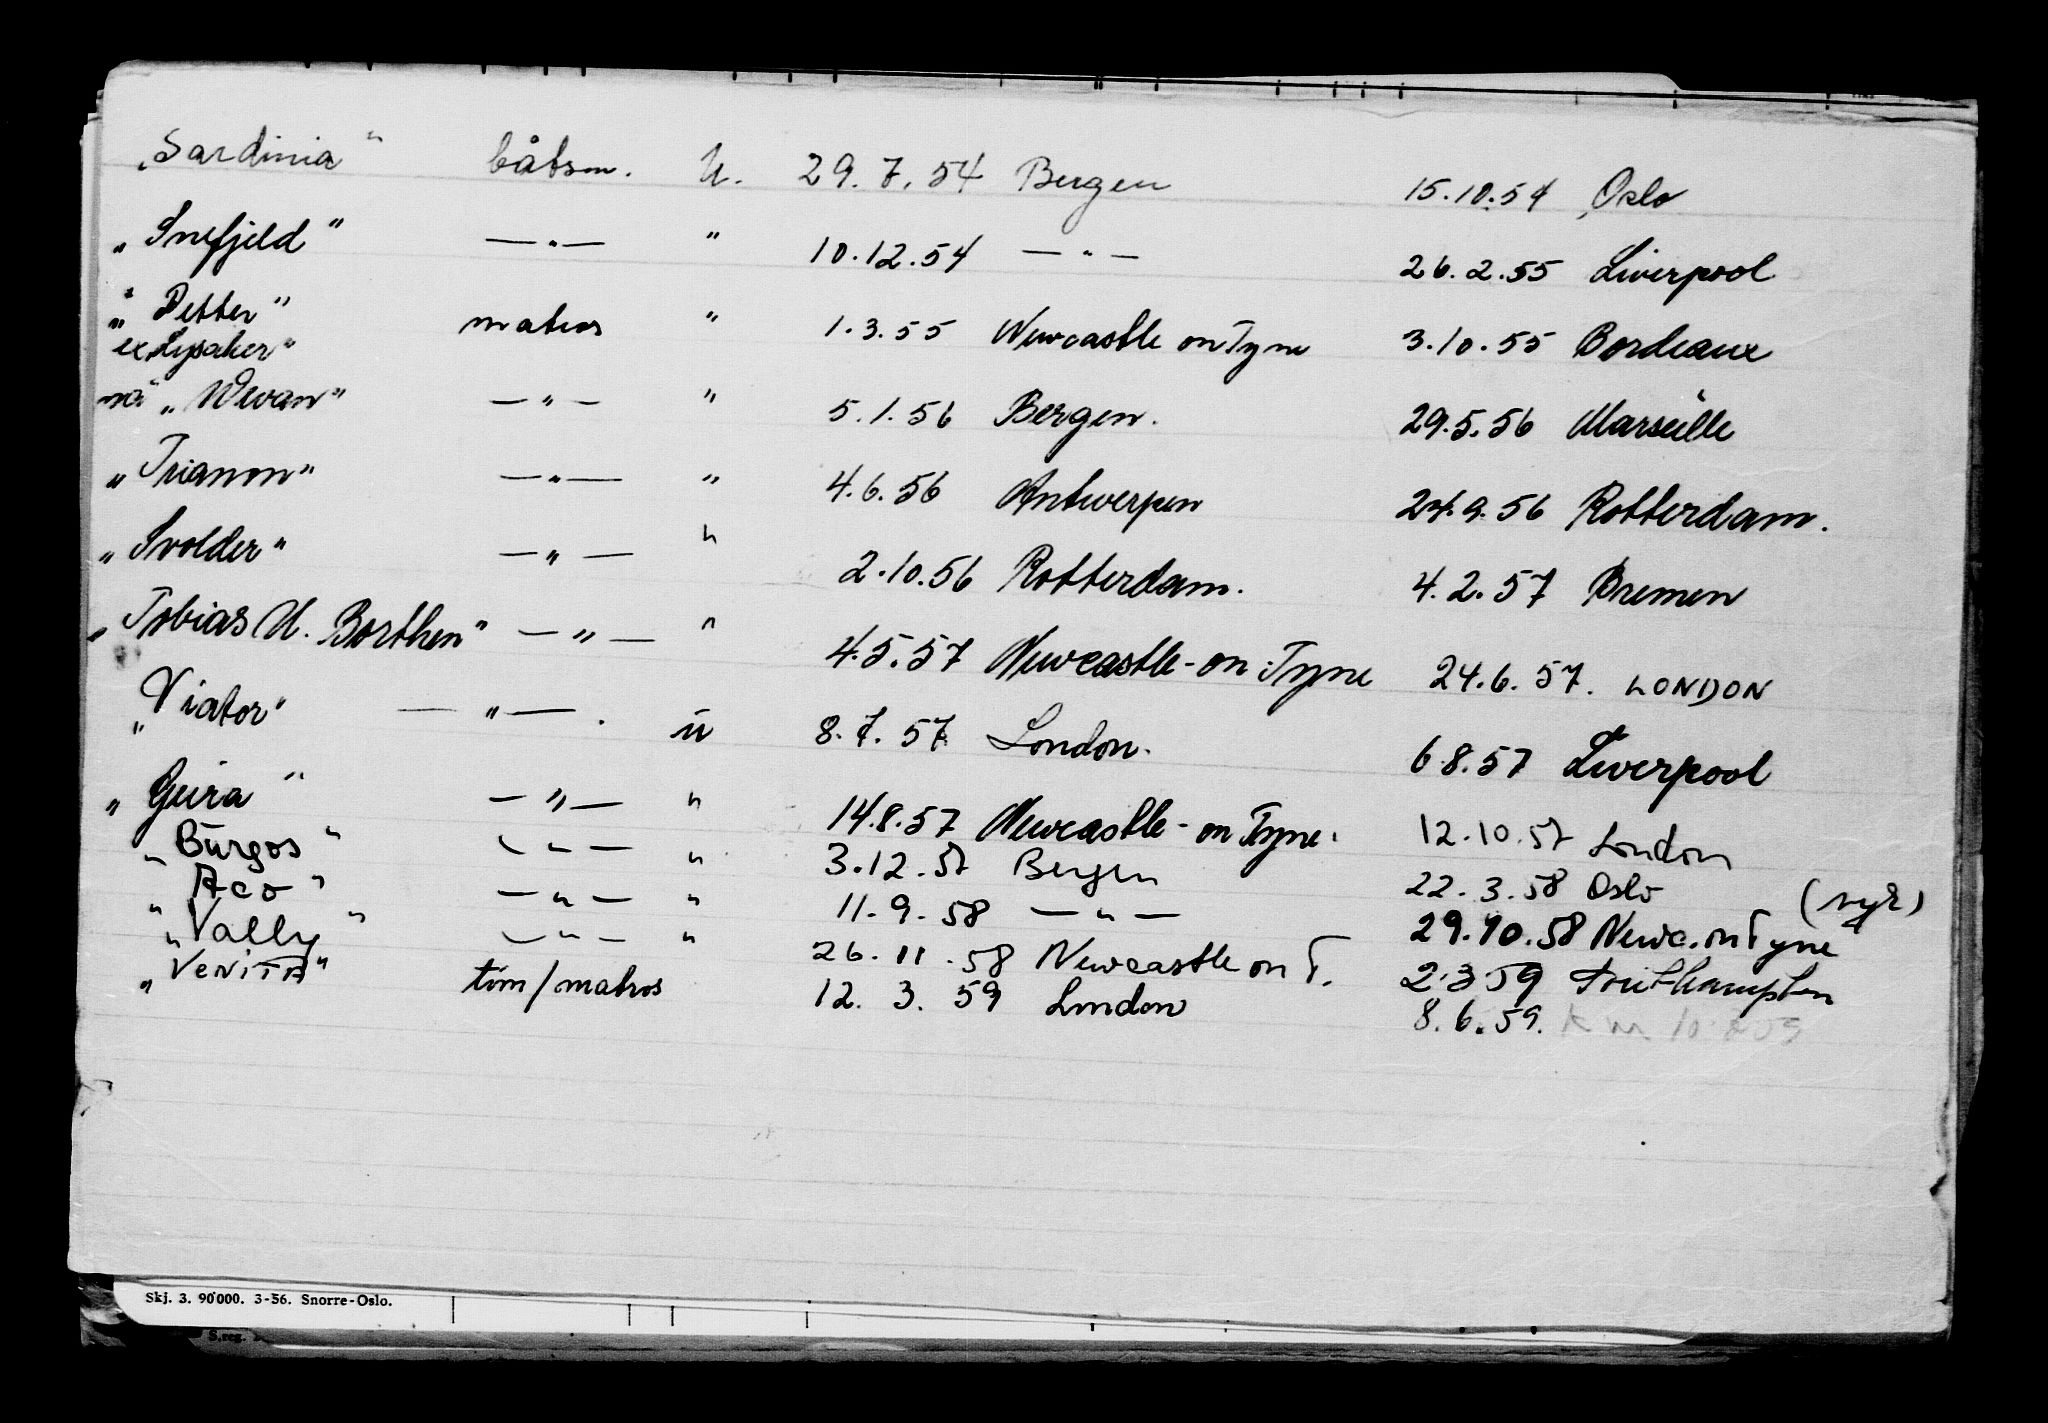 „Sardinia" båtsm. U. 29.7.54 Bergen 15.10.54 Oslo
„Snefjeld" —„— " 10.12.54 —„— 26.2.55 Liverpool
„Petter" matros " 1.3.55 Newcastle on Tyne 3.10.55 Bordeaux
ex„Lysaker"
nå „Wevan" —„— " 5.1.56 Bergen. 29.5.56 Marseille
„Trianon" —„— " 4.6.56 Antwerpen 24.9.56 Rotterdam.
„Svolder" —„— " 2.10.56 Rotterdam. 4.2.57 Bremen
„Tobias U. Borthen" —„— " 4.5.57 Newcastle-on-Tyne 24.6.57. LONDON
„Viator" —„—. u 8.7.57 London. 6.8.57 Liverpool
„Geira" —„— " 14.8.57 Newcastle-on Tyne. 12.10.57 London
„Burgos" —„— " 3.12.57 Bergen 22.3.58 Oslo
„Aco" —„— " 11.9.58 —„— 29.10.58 Newc. on Tyne (syk)
„Vally" —„— " 26.11.58 Newcastle on T. 2.3.59 Southampton
„VeNiTA" tøm/matros 12.3.59 London 8.6.59.
Skj. 3. 90000. 3-56. Snorre-Oslo.
S.reg.